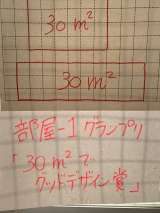 30 m²
30 m²
部屋-1 グランプリ
「30 m² で
グッドデザイン賞」